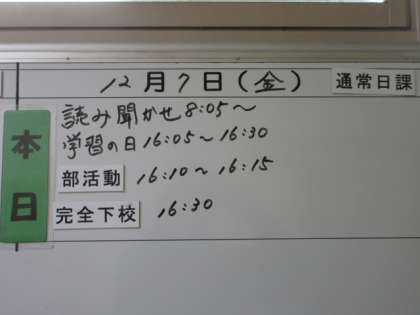 12月7日(金) 通常日課
本日
読み聞かせ 8:05～
学習の日 16:05～16:30
部活動 16:10～16:15
完全下校 16:30